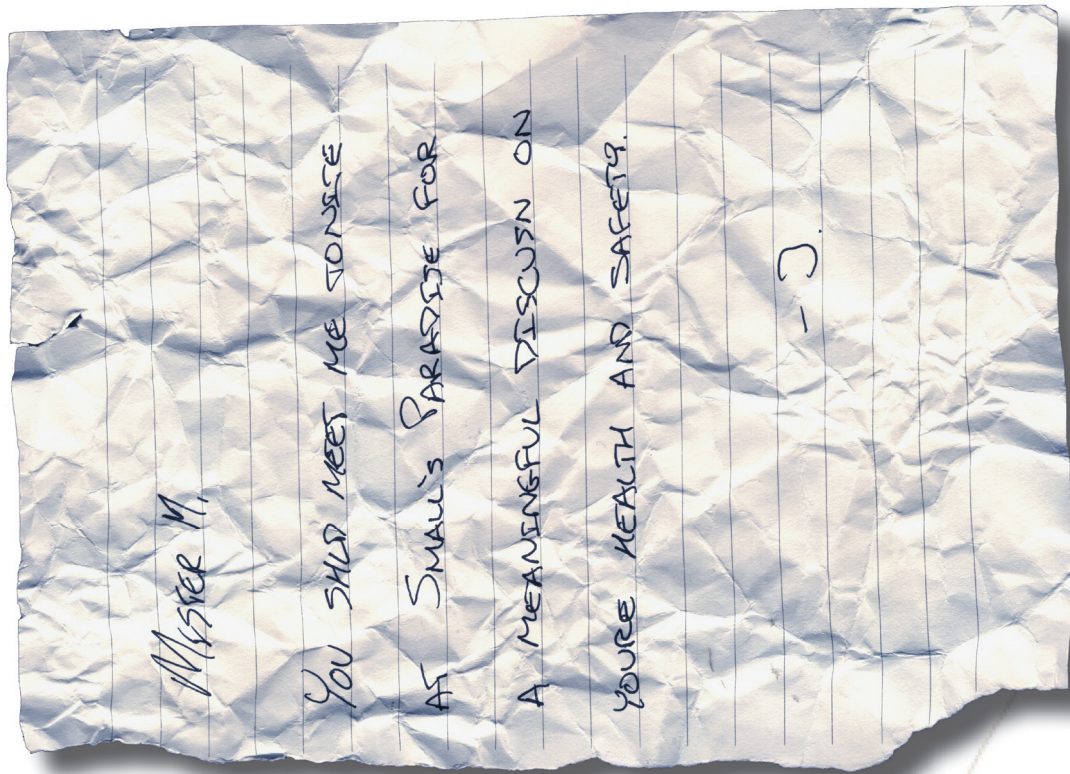 MISTER M,
YOU SHLD MEET ME TONITE
AT SMALL'S PARADISE FOR
A MEANINGFUL DISCUSN ON
YOURE HEALTH AND SAFETY.
- J.